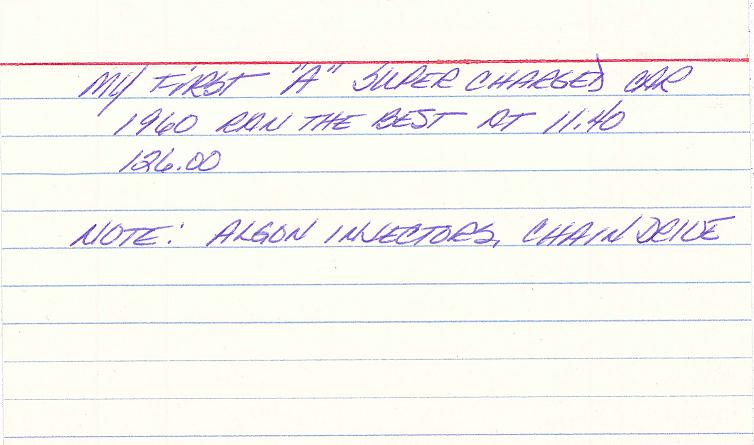 MY FIRST "A" SUPER CHARGED CAR
1960 RAN THE BEST AT 11.40
126.00
NOTE: ALGON INJECTORS, CHAIN DRIVE